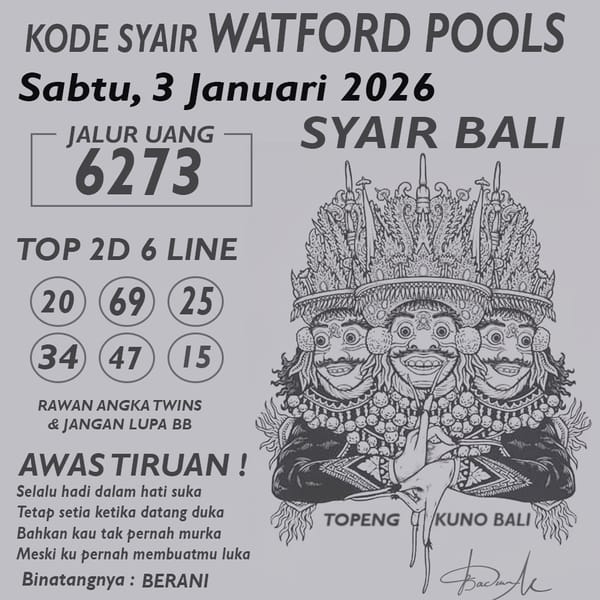 KODE SYAIR WATFORD POOLS
Sabtu, 3 Januari 2026
JALUR UANG
6273
SYAIR BALI
TOP 2D 6 LINE
20 69 25
34 47 15
RAWAN ANGKA TWINS
& JANGAN LUPA BB
AWAS TIRUAN !
Selalu hadi dalam hati suka
Tetap setia ketika datang duka
Bahkan kau tak pernah murka
Meski ku pernah membuatmu luka
Binatangnya : BERANI
TOPENG KUNO BALI